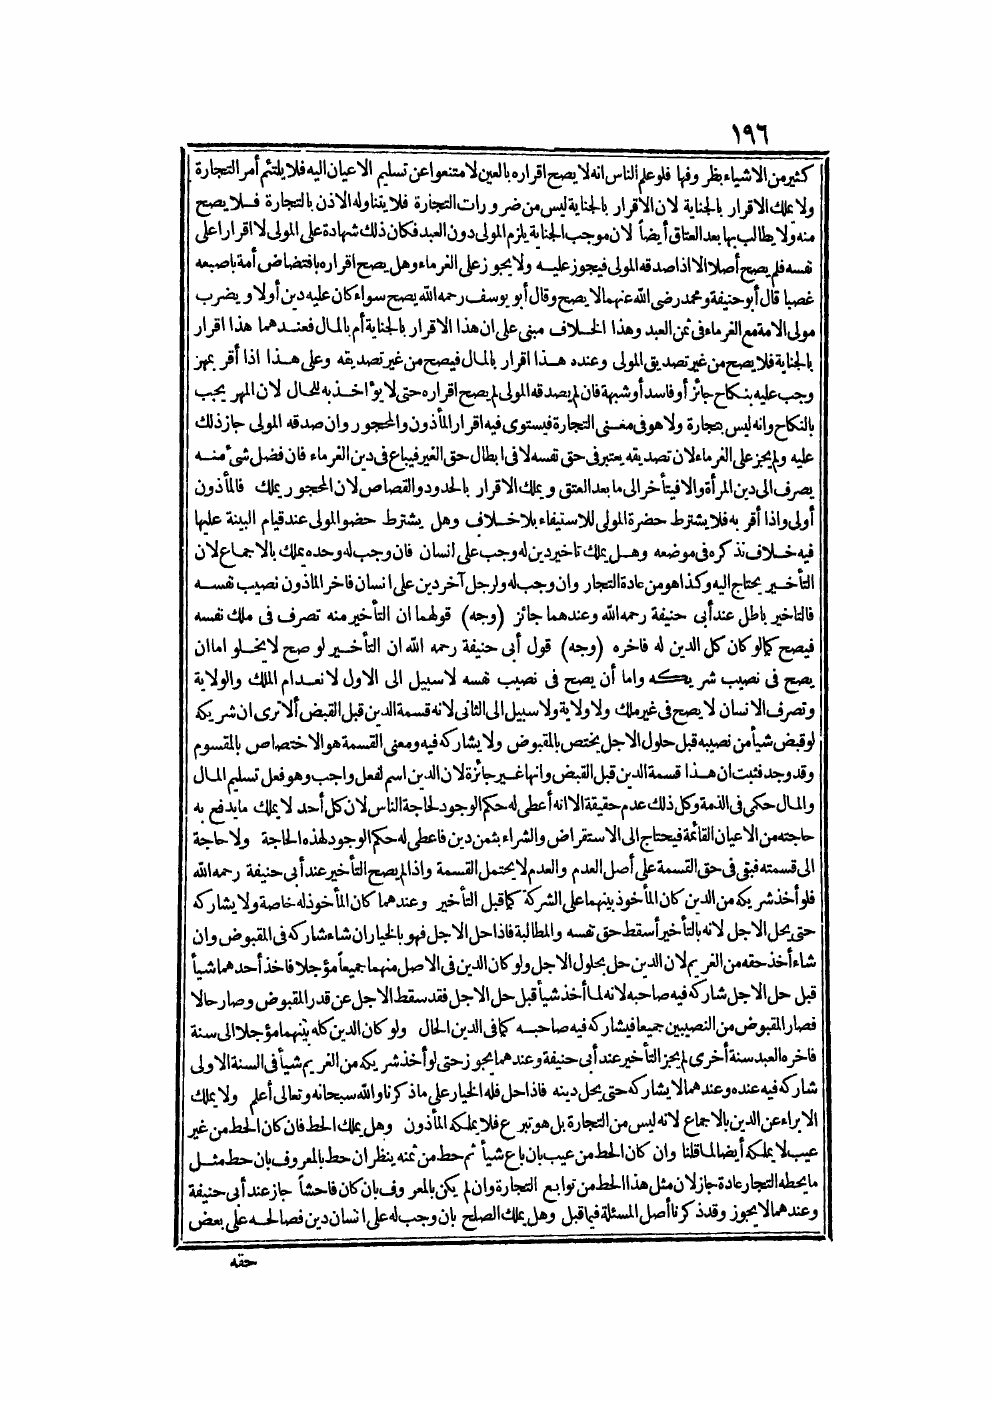 ١٩٦
كثير من الاشياء بظروفها فلو علم الناس انه لا يصح اقراره بالعين لامتنعوا عن تسليم الاعيان اليه فلا يلتئم أمر التجارة
ولا يملك الاقرار بالجناية لان الاقرار بالجناية ليس من ضرورات التجارة فلا يتناوله الاذن بالتجارة فلا يصح
منه ولا يطالب بها بعد العتاق أيضاً لان موجب الجناية يلزم المولى دون العبد فكان ذلك شهادة على المولى لا اقرارا على
نفسه فلم يصح أصلا الا اذا صدقه المولى فيجوز عليه ولا يجوز على الغرماء وهل يصح اقراره بافتضاض أمة باصبعه
غصبا قال أبو حنيفة ومحمد رضى الله عنهما لا يصح وقال أبو يوسف رحمه الله يصح سواء كان عليه دين أولا ويضرب
مولى الامة مع الغرماء فى ثمن العبد وهذا الخلاف مبنى على ان هذا الاقرار بالجناية أم بالمال فعندهما هذا اقرار
بالجناية فلا يصح من غير تصديق المولى وعنده هذا اقرار بالمال فيصح من غير تصديقه وعلى هذا اذا أقر بمهر
وجب عليه بنكاح جائز أو فاسد أو شبهة فان لم يصدقه المولى لم يصح اقراره حتى لا يؤاخذ به للحال لان المهر يجب
بالنكاح وانه ليس بتجارة ولا هو فى معنى التجارة فيستوى فيه اقرار المأذون والمحجور وان صدقه المولى جاز ذلك
عليه ولم يجز على الغرماء لان تصديقه يعتبر فى حق نفسه لا فى ابطال حق الغير فيباع فى دين الغرماء فان فضل شىء منه
يصرف الى دين المرأة والا فيتأخر الى ما بعد العتق و يملك الاقرار بالحدود والقصاص لان المحجور يملك فالمأذون
أولى واذا أقر به فلا يشترط حضرة المولى للاستيفاء بلا خلاف وهل يشترط حضو المولى عند قيام البينة عليها
فيه خلاف نذكره فى موضعه وهل يملك تاخير دين له وجب على انسان فان وجب له وحده يملك بالاجماع لان
التأخير يحتاج اليه وكذا هو من عادة التجار وان وجب له ولرجل آخر دين على انسان فاخر الماذون نصيب نفسه
فالتاخير باطل عند أبى حنيفة رحمه الله وعندهما جائز (وجه) قولهما ان التأخير منه تصرف فى ملك نفسه
فيصح كما لو كان كل الدين له فاخره (وجه) قول أبى حنيفة رحمه الله ان التأخير لو صح لا يخلو اما ان
يصح فى نصيب شريكه واما أن يصح فى نصيب نفسه لا سبيل الى الاول لانعدام الملك والولاية
وتصرف الانسان لا يصح فى غير ملك ولا ولاية ولا سبيل الى الثانى لانه قسمة الدين قبل القبض ألا ترى ان شريكه
لو قبض شيأ من نصيبه قبل حلول الاجل يختص بالمقبوض ولا يشاركه فيه ومعنى القسمة هو الاختصاص بالمقسوم
وقد وجد فثبت ان هذا قسمة الدين قبل القبض وانها غير جائزة لان الدين اسم لفعل واجب وهو فعل تسليم المال
والمال حكمى فى الذمة وكل ذلك عدم حقيقة الا انه أعطى له حكم الوجود لحاجة الناس لان كل أحد لا يملك ما يدفع به
حاجته من الاعيان القائمة فيحتاج الى الاستقراض والشراء بثمن دين فاعطى له حكم الوجود لهذه الحاجة ولا حاجة
الى قسمته فبقى فى حق القسمة على أصل العدم والعدم لا يحتمل القسمة واذا لم يصح التأخير عند أبى حنيفة رحمه الله
فلو أخذ شريكه من الدين كان المأخوذ بينهما على الشركة كما قبل التأخير وعندهما كان المأخوذ له خاصة ولا يشاركه
حتى يحل الاجل لانه بالتأخير أسقط حق نفسه والمطالبة فاذا حل الاجل فهو بالخيار ان شاء شاركه فى المقبوض وان
شاء أخذ حقه من الغريم لان الدين حل بحلول الاجل ولو كان الدين فى الاصل منهما جميعاً مؤجلا فاخذ أحدهما شيأ
قبل حل الاجل شاركه فيه صاحبه لانه لما أخذ شيأ قبل حل الاجل فقد سقط الاجل عن قدر المقبوض وصار حالا
فصار المقبوض من النصيبين جميعا فيشاركه فيه صاحبه كما فى الدين الحال ولو كان الدين كله بينهما مؤجلا الى سنة
فاخره العبد سنة أخرى لم يجز التأخير عند أبى حنيفة وعندهما يجوز حتى لو أخذ شريكه من الغريم شيأ فى السنة الاولى
شاركه فيه عنده وعندهما لا يشاركه حتى يحل دينه فاذا حل فله الخيار على ما ذكرنا والله سبحانه وتعالى أعلم ولا يملك
الابراء عن الدين بالاجماع لانه ليس من التجارة بل هو تبرع فلا يملكه المأذون وهل يملك الحط فان كان الحط من غير
عيب لا يملكه أيضا لما قلنا وان كان الحط من عيب بان باع شيأ ثم حط من ثمنه ينظر ان حط بالمعروف بان حط مثل
ما يحطه التجار عادة جاز لان مثل هذا الحط من توابع التجارة وان لم يكن بالمعروف بان كان فاحشاً جاز عند أبى حنيفة
وعندهما لا يجوز وقد ذكرنا أصل المسئلة فيما قبل وهل يملك الصلح بان وجب له على انسان دين فصالحه على بعض
حقه